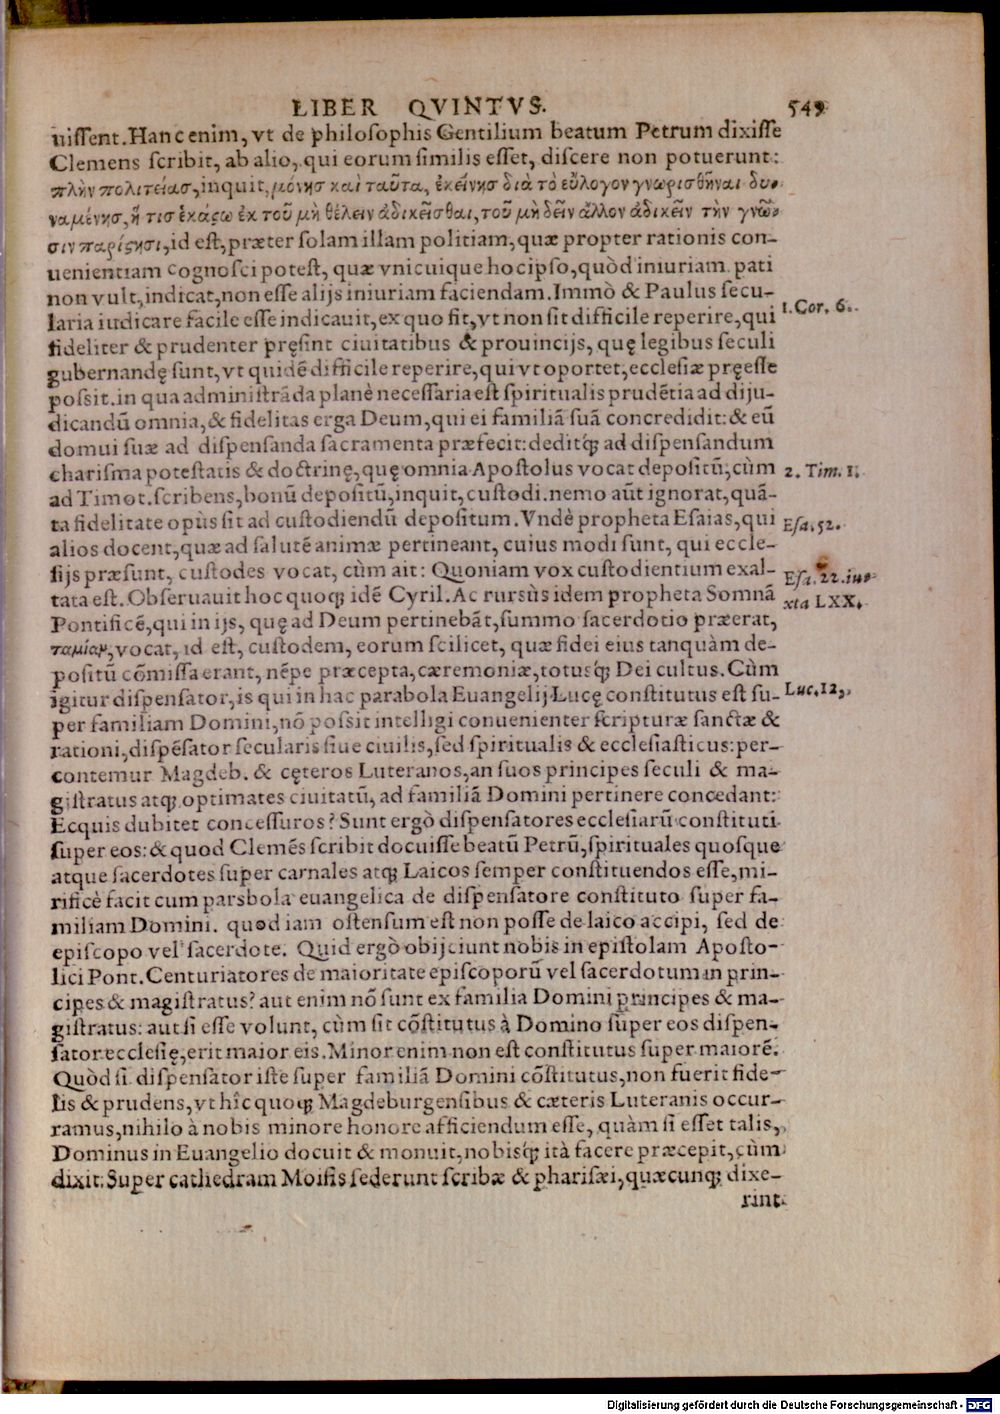 LIBER QVINTVS. 549
uissent. Hanc enim, vt de philosophis Gentilium beatum Petrum dixisse
Clemens scribit, ab alio, qui eorum similis esset, discere non potuerunt:
πλὴν πολιτείασ, inquit, μόνησ καὶ ταῦτα, ἐκείνησ διὰ τὸ εὔλογον γνωρισθῆναι δυ-
ναμένησ, ἥ τισ ἑκάςῳ ἐκ τοῦ μὴ θέλειν ἀδικεῖσθαι, τοῦ μὴ δεῖν ἄλλον ἀδικεῖν τὴν γνῶ-
σιν παρίςησι, id est, præter solam illam politiam, quæ propter rationis con-
uenientiam cognosci potest, quæ vnicuique hoc ipso, quòd iniuriam pati
non vult, indicat, non esse alijs iniuriam faciendam. Immò & Paulus secu-
laria iudicare facile esse indicauit, ex quo fit, vt non sit difficile reperire, qui 1. Cor. 6.
fideliter & prudenter pręsint ciuitatibus & prouincijs, quę legibus seculi
gubernandę sunt, vt quidē difficile reperire, qui vt oportet, ecclesiæ pręesse
possit. in qua administrāda planè necessaria est spiritualis prudētia ad diju-
dicandū omnia, & fidelitas erga Deum, qui ei familiā suā concredidit: & eū
domui suæ ad dispensanda sacramenta præfecit: deditq́; ad dispensandum
charisma potestatis & doctrinę, quę omnia Apostolus vocat depositū, cùm 2. Tim. 1.
ad Timot. scribens, bonū depositū, inquit, custodi. nemo aūt ignorat, quā-
ta fidelitate opùs sit ad custodiendū depositum. Vndè propheta Esaias, qui Esa. 52.
alios docent, quæ ad salutē animæ pertineant, cuius modi sunt, qui eccle-
sijs præsunt, custodes vocat, cùm ait: Quoniam vox custodientium exal- Esa. 22. iu-
tata est. Obseruauit hoc quoq; idē Cyril. Ac rursùs idem propheta Somnā xta LXX.
Pontificē, qui in ijs, quę ad Deum pertinebāt, summo sacerdotio præerat,
ταμίαν, vocat, id est, custodem, eorum scilicet, quæ fidei eius tanquàm de-
positū cōmissa erant, nēpe præcepta, cæremoniæ, totusq́; Dei cultus. Cùm
igitur dispensator, is qui in hac parabola Euangelij Lucę constitutus est su- Luc. 12.
per familiam Domini, nō possit intelligi conuenienter scripturæ sanctæ &
rationi, dispēsator secularis siue ciuilis, sed spiritualis & ecclesiasticus: per-
contemur Magdeb. & cęteros Luteranos, an suos principes seculi & ma-
gistratus atq; optimates ciuitatū, ad familiā Domini pertinere concedant:
Ecquis dubitet concessuros? Sunt ergò dispensatores ecclesiarū constituti
super eos: & quod Clemēs scribit docuisse beatū Petrū, spirituales quosque
atque sacerdotes super carnales atq; Laicos semper constituendos esse, mi-
rificè facit cum parabola euangelica de dispensatore constituto super fa-
miliam Domini. quod iam ostensum est non posse de laico accipi, sed de
episcopo vel sacerdote. Quid ergò obijciunt nobis in epistolam Aposto-
lici Pont. Centuriatores de maioritate episcoporū vel sacerdotum in prin-
cipes & magistratus? aut enim nō sunt ex familia Domini principes & ma-
gistratus: aut si esse volunt, cùm sit cōstitutus à Domino super eos dispen-
sator ecclesię, erit maior eis. Minor enim non est constitutus super maiorē.
Quòd si dispensator iste super familiā Domini cōstitutus, non fuerit fide-
lis & prudens, vt hîc quoq; Magdeburgensibus & cæteris Luteranis occur-
ramus, nihilo à nobis minore honore afficiendum esse, quàm si esset talis,
Dominus in Euangelio docuit & monuit, nobisq́; ità facere præcepit, cùm
dixit: Super cathedram Moisis sederunt scribæ & pharisæi, quæcunq; dixe-
rint
Digitalisierung gefördert durch die Deutsche Forschungsgemeinschaft - DFG